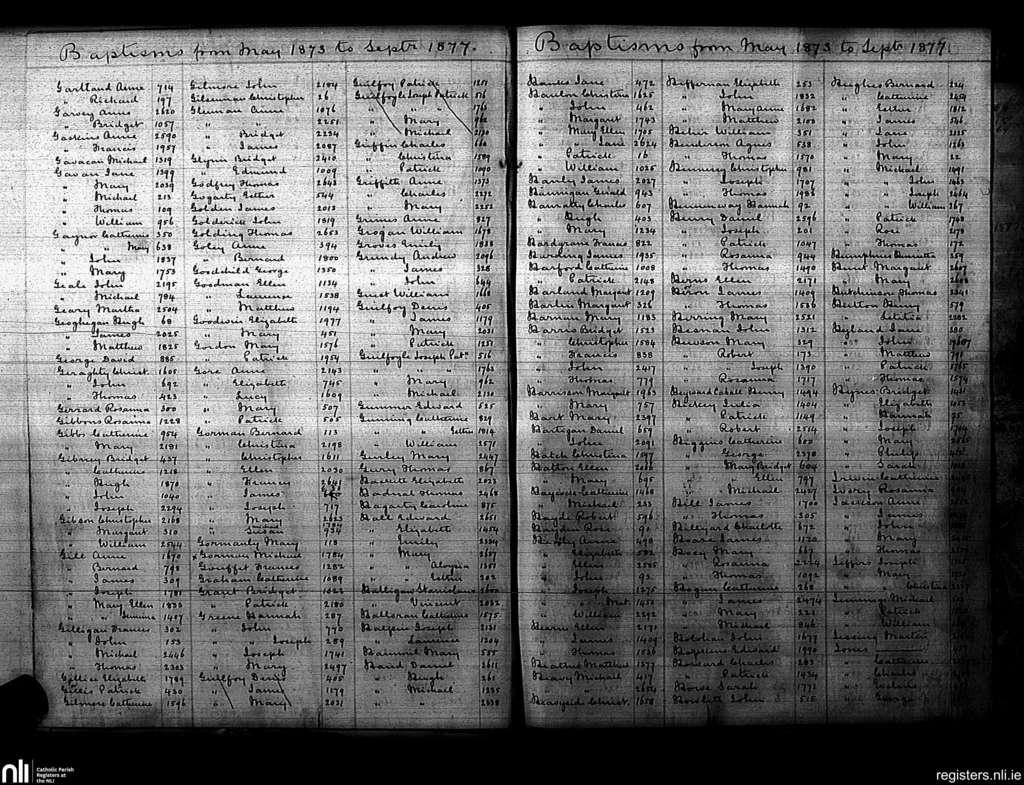 Baptisms from May 1873 to Septr 1877.
Gartland Anne 714
" Richard 197
Garvey Anne 2620
" Bridget 1057
Gaskins Anne 2590
" Francis 1957
Gavacan Michael 1319
Gavan Jane 1399
" Mary 2039
" Michael 213
" Thomas 109
" William 956
Gaynor Catherine 350
" Mary 638
" John 1837
" Mary 1753
Geale John 2195
" Michael 784
Geary Martha 2504
Geoghegan Hugh 68
" James 2025
" Matthew 1825
George David 885
Geraghty Christ. 1605
" John 692
" Thomas 423
Gerrard Rosanna 300
Gibbons Rosanna 1228
Gibbs Catherine 954
" Mary 2181
Gibney Bridget 437
" Catherine 1218
" Hugh 1870
" John 1040
" Joseph 2294
Gibson Christopher 2168
" Margaret 310
" William 2544
Gill Anne 1670
" Bernard 798
" James 309
" Joseph 1781
" Mary Ellen 1833
" " 1407
Gilligan Francis 302
" John 153
" Michael 2446
" Thomas 2303
Gillice Elizabeth 1789
Gillis Patrick 430
Gilmore Catherine 1596
Gilmore John 2184
Glennan Christopher 26
Glennan Anne 1876
" " 2251
" Bridget 2234
" James 2087
Glynn Bridget 2410
" Edmund 1009
Godfrey Thomas 2643
Gogarty Esther 544
Golden James 2013
Golderick John 1819
Golding Thomas 2653
Goley Anne 394
" Bernard 1800
Goodchild George 1350
Goodman Ellen 1134
" Laurence 1538
" Matthew 1194
Goodwin Elizabeth 1977
" Mary 451
Gordon Mary 1576
" Patrick 1954
Gore Anne 2143
" Elizabeth 745
" Lucy 1609
" Mary 507
" Patrick 505
Gorman Bernard 113
" Christina 2198
" Christopher 1611
" Ellen 2030
" Frances 2641
" James
" Joseph 717
" Mary 2623
" Susan 734
Gormanly Mary 181
Gorman Michael 1784
Gouffet Frances 1282
Graham Catherine 1089
Grant Bridget 1022
" Patrick 2180
Greene Hannah 287
" John 776
" Joseph 289
" Joseph 1741
" Mary 2497
Guilfoy Denis 405
" James 1179
" Mary 2031
Guilfoy Patrick 1251
Guilfoyle Joseph Patrick 516
" " 1763
" Mary 962
" Michael 2130
Griffin Charles 660
" Christina 1589
" Patrick 1090
Griffith Anne 1373
" Charles 2272
" Mary 2252
Grimes Anne 827
Grogan William 1678
Groves Emily 1838
Grundy Andrew 2096
" James 328
" John 644
Guest William 1668
Guilfoy Denis 405
" James 1179
" Mary 2031
" Patrick 1251
Guilfoyle Joseph Patk. 516
" " 1763
" Mary 962
" Michael 2130
Gummer Edward 525
Gunning Catherine 829
" Esther 1814
" William 2571
Gurley Mary 2447
Gurry Thomas 867
Hackett Elizabeth 2023
Hadnal Thomas 2468
Hagarty Caroline 875
Hall Edward 2651
" Elizabeth 1454
" Emily 2334
" Mary 2607
" Aloysia 1351
" Esther 202
Halligan Stanislaus 2600
" Vincent 2032
Halloran Catherine 1575
Halpin Joseph 2131
" Laurence 1204
Hammil Mary 555
Hand Daniel 2611
" Hugh 261
" Michael 1235
" " 2338
Baptisms from May 1873 to Septr 1877.
Hanlon Jane 472
Hanlon Christina 1625
" John 462
" Margaret 1743
" Mary Ellen 1705
" Jane 2624
" Patrick 16
" William 1025
Hanly James 2027
Hannigan Gerald 943
Hanratty Charles 607
" Hugh 403
" Mary 1234
Hardgrane Francis 822
Harding James 1935
Harford Catherine 1008
" Patrick 2148
Harland Margaret 1209
Harlin Margaret 326
Harnan Mary 1183
Harris Bridget 1523
" Christopher 1584
" Frances 838
" John 2417
" Thomas 779
Harrison Margaret 1963
" Mary 757
Hart Mary 2397
Hartigan Daniel 659
" John 2091
Hatch Christina 1597
Hatton Ellen 2086
" Mary 695
Haydens Catherine 1468
" Michael 233
Hayde Robert 596
Hayden Rose 92
Healy Anne 490
" Elizabeth 582
" Ellen 2585
" John 93
" Joseph 1275
" Mat. 1450
" William 2292
Hearn Ellen 2171
" James 1409
" Thomas 1536
Heather Matthew 1377
Heavy Michael 417
" " 2654
Heavyside Christ. 1658
Heffernan Elizabeth 253
" John 1232
" Mary Anne 1682
" Matthew 2103
Hehir William 351
Henderson Agnes 538
" Thomas 1570
Hennessy Christopher 981
" Joseph 1707
" Thomas 1986
Hennaway Hannah 92
Henry Daniel 2596
" Joseph 201
" Patrick 1047
" Rosanna 944
" Thomas 1490
Herns Ellen 2171
Heron James 1409
" Thomas 1536
Herring Mary 2521
Hesnan John 1312
Hewson Mary 329
" Robert 173
" Joseph 1390
" Rosanna 1717
Heyward Cahill Henry 1494
Hickey Julia 1404
" Patrick 1149
" Robert 2514
Higgins Catherine 600
" George 2370
" Mary Bridget 604
" Ellen 797
" Michael 2427
Hill James 1700
" Thomas 305
Hillyard Charlotte 672
Hoare James 1120
Hoey Mary 667
" Rosanna 2224
" Thomas 1092
Hogan Catherine 268
" James 2474
" Mary 221
" Michael 846
Holohan John 1677
Hopkins Edward 1990
Howard Charles 283
" Patrick 1934
Howe Sarah 1772
Howlett John 515
Hughes Bernard 224
" Catherine 2404
" Esther 1812
" James 546
" Jane 2125
" John 1263
" Mary 22
" Michael 1091
" John 1463
" Joseph 2664
" William 267
" Patrick 1748
" Rose 2178
" Thomas 172
Humphries Henrietta 259
Hunt Margaret 2667
" Mary 2608
Hutchinson Thomas 2341
Hutton Henry 579
" Letitia 2282
Hyland Jane 380
" John 1960
" Matthew 791
" Patrick 1765
" Thomas 1574
Hynes Bridget 1431
" Elizabeth
" Hannah
" Joseph 1704
" Mary 2066
" Philip
" Sarah
Irwin Catherine
Ivory Rosanna
Jackson Anne
" James
" John
" Mary
" Thomas
Jeffers Joseph
" Mary
" Christina
Jennings Michael
" Patrick
" William
Jessin Martin
Jones
" Catherine
" Charles
" George
nli Catholic Parish Registers at the NLI
registers.nli.ie